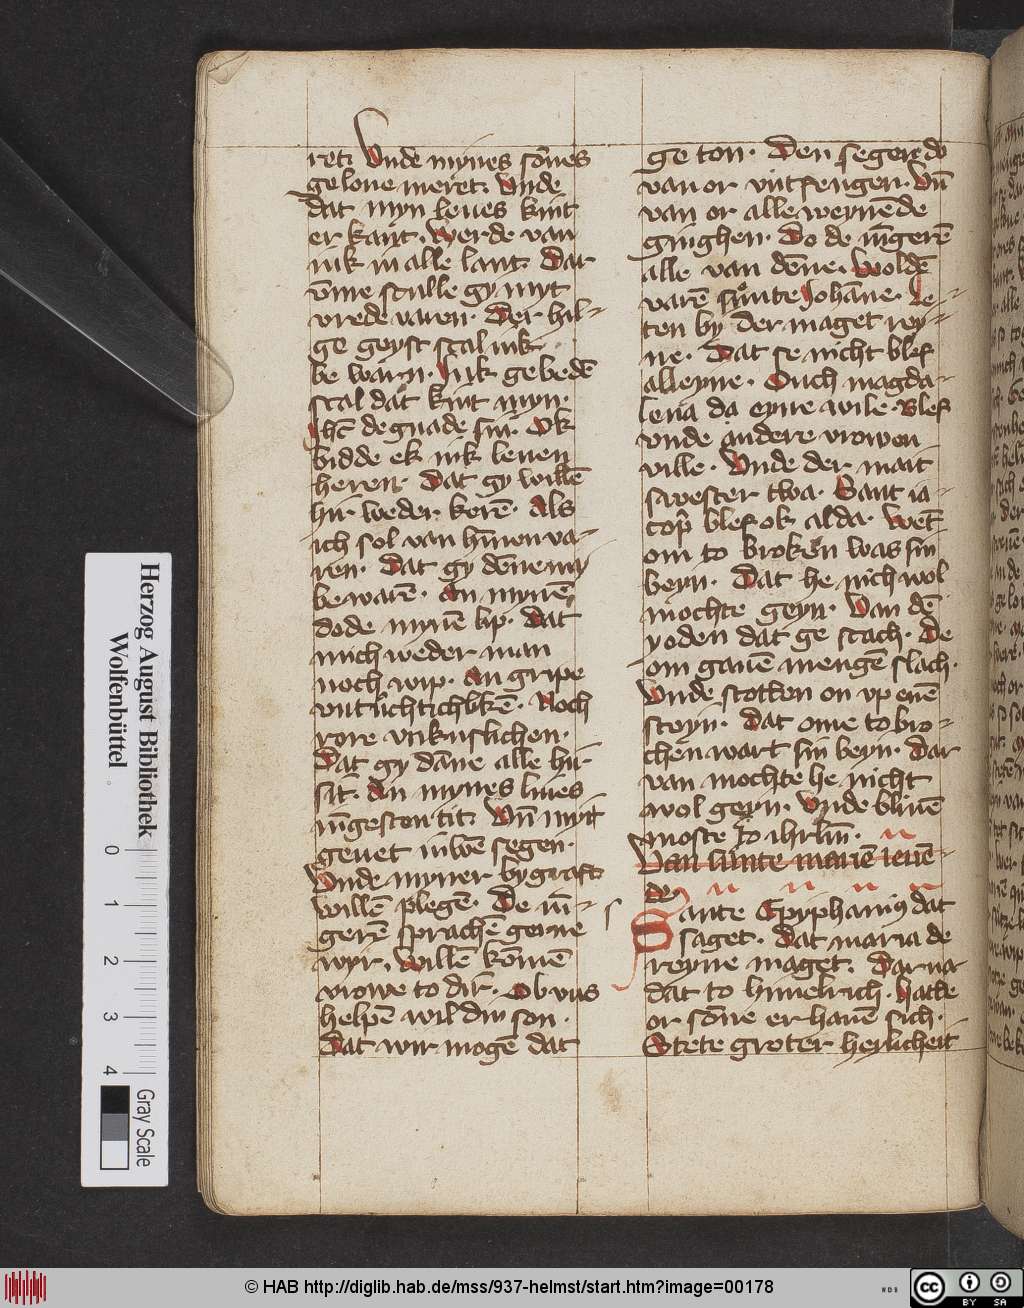 ret. Vnde mynes sōnes
geloue meret. Vnde
dat myn leues kint
er kant. Werde van
iuk in alle lant. Dar
vmme sculle gy myt
vrede varen. Der hil=
ge geyst scal iuk
be warn. Iuk gebedē
scal dat kint myn.
Jhc̄ de gnade sin. Ok
bidde ek iuk leuen
heren. Dat gy willē
hir weder kerē. Als
ich sol van hīnen va-
ren. Dat gy dēne mi
bewarē. An mynē
dode mynē lip. Dat
mich weder man
noch wip. An gripe
vntuchtichlikē. Noch
rore vnkuslichen.
Dat gy dāne alle hir
sit. An mynes liues
iūgesten tit. Vn̄ myt
geuet iuwē segen.
Vnde myner bygraft
willē plegē. De iū=
gerē sprachē gerne
wyr. Willē kōmē
vrowe to dir. Ob vns
helpē wil din son.
Dat wir mogē dat
ge ton. Den segen do
van or vntfengen. Vn̄
van or alle weynēde
ginghen. Do de iūgerē
alle van dēne. Woldē
varē sunte Johāne. Le=
ten by der maget rey=
ne. Dat se nicht blef
alleyne. Ouch magda-
lena da eyne wile. Blef
vnde andere vrowen
ville. Vnde der mait
swester twa. Sant ia-
cop̄ blef ok alda. Wēt
om to broken was sin
beyn. Dat he nich wol
mochte geyn. Van dē
yoden dat ge scach. De
om gauē mengē slach.
Vnde stotten on vp enē
steyn. Dat ome to bro=
chen wart sin beyn. Dar
van mochte he nicht
wol geyn. Vnde bliuē
moste to ihrlm̄.
Van sunte mariē leuē=
de
Sante Epyphanius dat
saget. Dat maria de
reyne maget. Dar na
dat to himelrich. Hatte
or sōne er hauē sich.
Stete groter herlicheit
Herzog August Bibliothek
Wolfenbüttel
0 1 2 3 4
Gray Scale
© HAB http://diglib.hab.de/mss/937-helmst/start.htm?image=00178
WDB
cc
BY SA